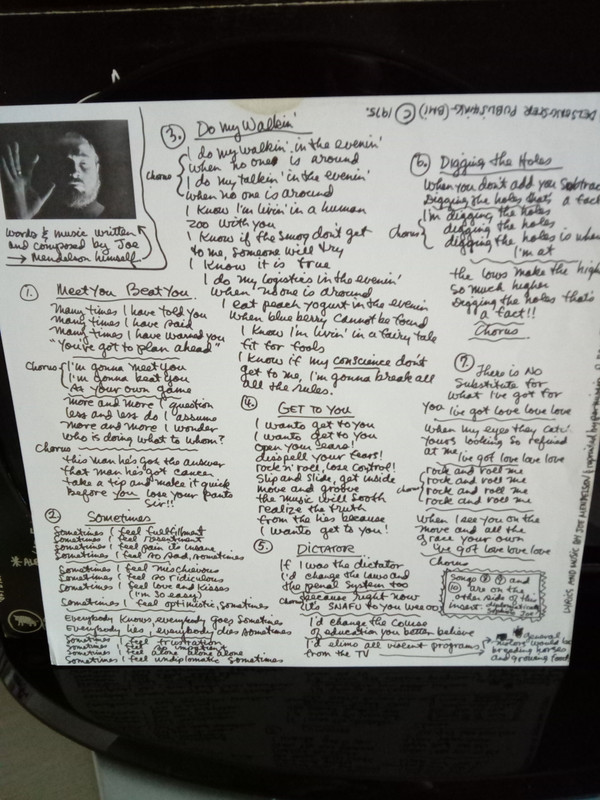 words & music written
and composed by Joe
→ Mendelson himself.
1. Meet You Beat You
Many times I have told you
Many times I have said
Many times I have warned you
"You've got to plan ahead"
Chorus { I'm gonna meet you
I'm gonna beat you
At your own game
more and more I question
less and less do I assume
more and more I wonder
who is doing what to whom?
Chorus
this man he's got the answer
that man he's got cancer
take a tip and make it quick
Before you lose your pants
Sir!!
2. Sometimes
Sometimes I feel fulfillment
Sometimes I feel resentment
Sometimes I feel pain its insane
Sometimes I feel so sad, sometimes
Sometimes I feel mischevious
Sometimes I feel so ridiculous
Sometimes I feel love and kisses
(I'm so easy)
Sometimes I feel optimistic, sometimes
Everybody knows, everybody goes Sometimes
Everybody lies, everybody dies Sometimes
Sometimes I feel frustration
Sometimes I feel so impatient
Sometimes I feel alone alone alone
Sometimes I feel undiplomatic Sometimes
3. Do My Walkin'
Chorus { I do my walkin' in the evenin'
when no one is around
I do my talkin' in the evenin'
when no one is around
I know I'm livin' in a human
zoo with you
I know if the smog don't get
to me, someone will try
I know it is true
I do my logistics in the evenin'
when no one is around
I eat peach yogurt in the evenin
When blueberry cannot be found
I know I'm livin' in a fairy tale
fit for fools
I know if my conscience don't
get to me, I'm gonna break all
all the rules.
4. Get To You
I wants to get to you
I wants to get to you
Open your ears!
disspell your fears!
rock n' roll, lose control!
Slip and Slide, get inside
move and groove
the music will sooth
realize the truth
from the lies because
I wants to get to you!
5. Dictator
If I was the dictator
I'd change the laws and
the penal system too
Chorus because right now
its SNAFU to you
I'd change the course
of education you better believe
I'd elimo all violent programs
from the TV
General
motors would be
breeding horses
and growing food
6. Digging the Holes
When you don't add you subtrac
Digging the holes that's a fact
Chorus { I'm digging the holes
digging the holes
digging the holes is wher
I'm at
the lows make the high
so much higher
Digging the holes that's
a fact!!
Chorus
7. There is No
Substitute for
what I've got for
you I've got love love love
When my eyes they catc
yours looking so refined
at me, I've got love love love
chorus { rock and roll me
rock and roll me
rock and roll me
rock and roll me
When I see you on the
move and all the
grace your own
I've got love love love
Chorus
Songs 8 9 and
10 are on the
other side of this
insert.
PUBLISHING (BMI) © 1975.